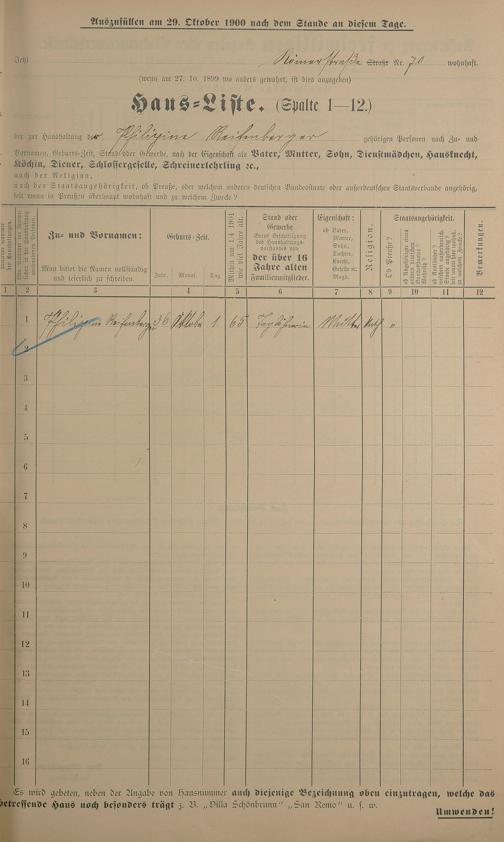 Auszufüllen am 29. Oktober 1900 nach dem Stande an diesem Tage.
Jetzt Römerstraße Straße Nr. 70 wohnhaft.
(wenn am 27. 10. 1899 wo anders gewohnt, ist dies anzugeben)
Haus-Liste. (Spalte 1—12.)
der zur Haushaltung der Philippine Reifenberger gehörigen Personen nach Zu- und
Vornamen, Geburts-Zeit, Stand oder Gewerbe, nach der Eigenschaft als Vater, Mutter, Sohn, Dienstmädchen, Hausknecht,
Köchin, Diener, Schlossergeselle, Schreinerlehrling ꝛc.,
nach der Religion,
nach der Staatsangehörigkeit, ob Preuße, oder welchem anderen deutschen Bundesstaate oder außerdeutschen Staatsverbande angehörig,
seit wann in Preußen überhaupt wohnhaft und zu welchem Zwecke?
Zu- und Vornamen:
Man bittet die Namen vollständig
und leserlich zu schreiben.
Geburts-Zeit.
Jahr. Monat. Tag.
Mithin am 1/4 1901
wie viel Jahre alt.
Stand oder
Gewerbe
der über 16
Jahre alten
Familienmitglieder.
Eigenschaft:
ob Vater,
Mutter,
Sohn,
Tochter,
Knecht,
Geselle u.
Magd.
Religion.
Staatsangehörigkeit.
Ob Preuße?
Bemerkungen.
1 2 3 4 5 6 7 8 9 10 11 12
1 Philippine Reifenberger 36 Oktober 1 65 Taglöhnerin Mutter Kath "
2
3
4
5
6
7
8
9
10
11
12
13
14
15
16
Es wird gebeten, neben der Angabe von Hausnummer auch diejenige Bezeichnung oben einzutragen, welche das
betreffende Haus noch besonders trägt z. B. „Villa Schönbrunn" „San Remo" u. s. w.
Umwenden!